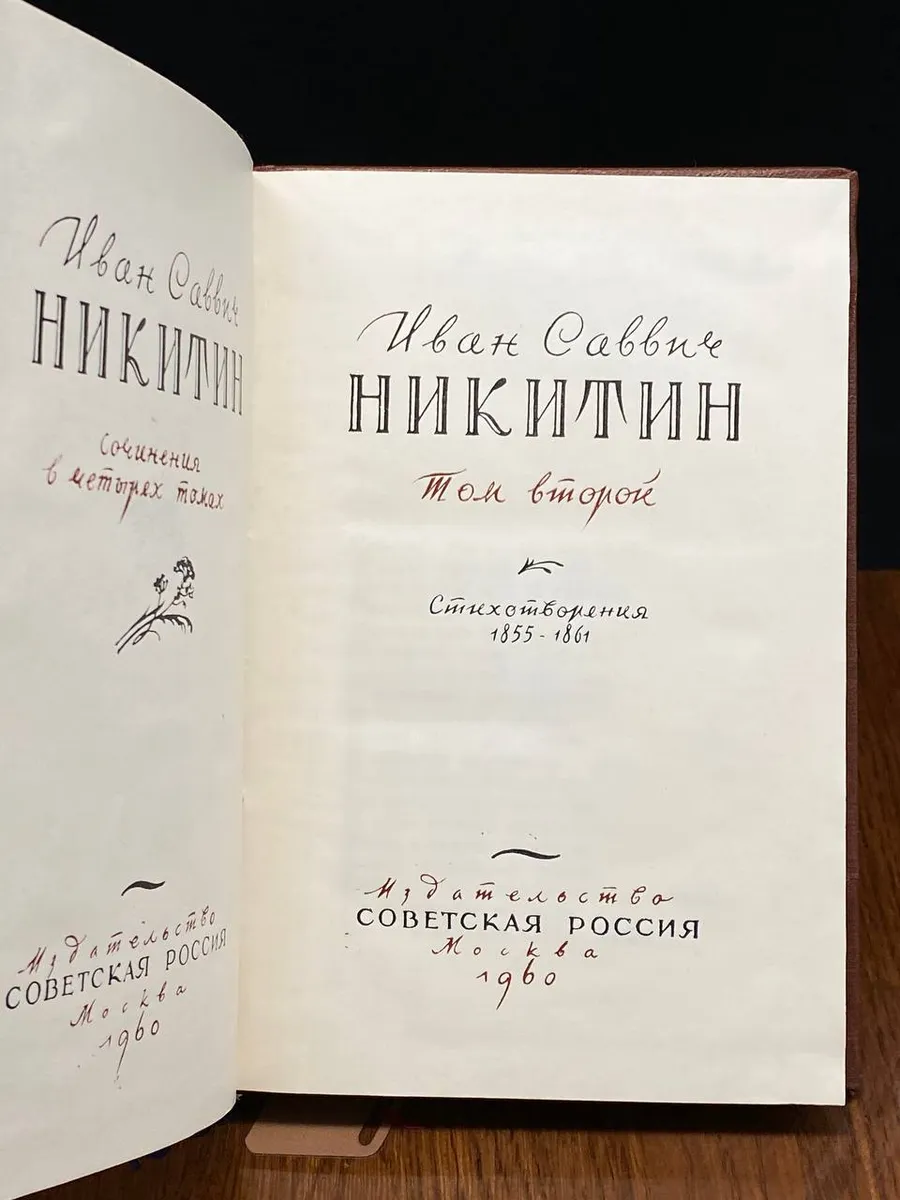 Иван Саввич
НИКИТИН
сочинения
в четырех томах
Издательство
СОВЕТСКАЯ РОССИЯ
Москва
1960
Иван Саввич
НИКИТИН
Том второй
Стихотворения
1855-1861
Издательство
СОВЕТСКАЯ РОССИЯ
Москва
1960